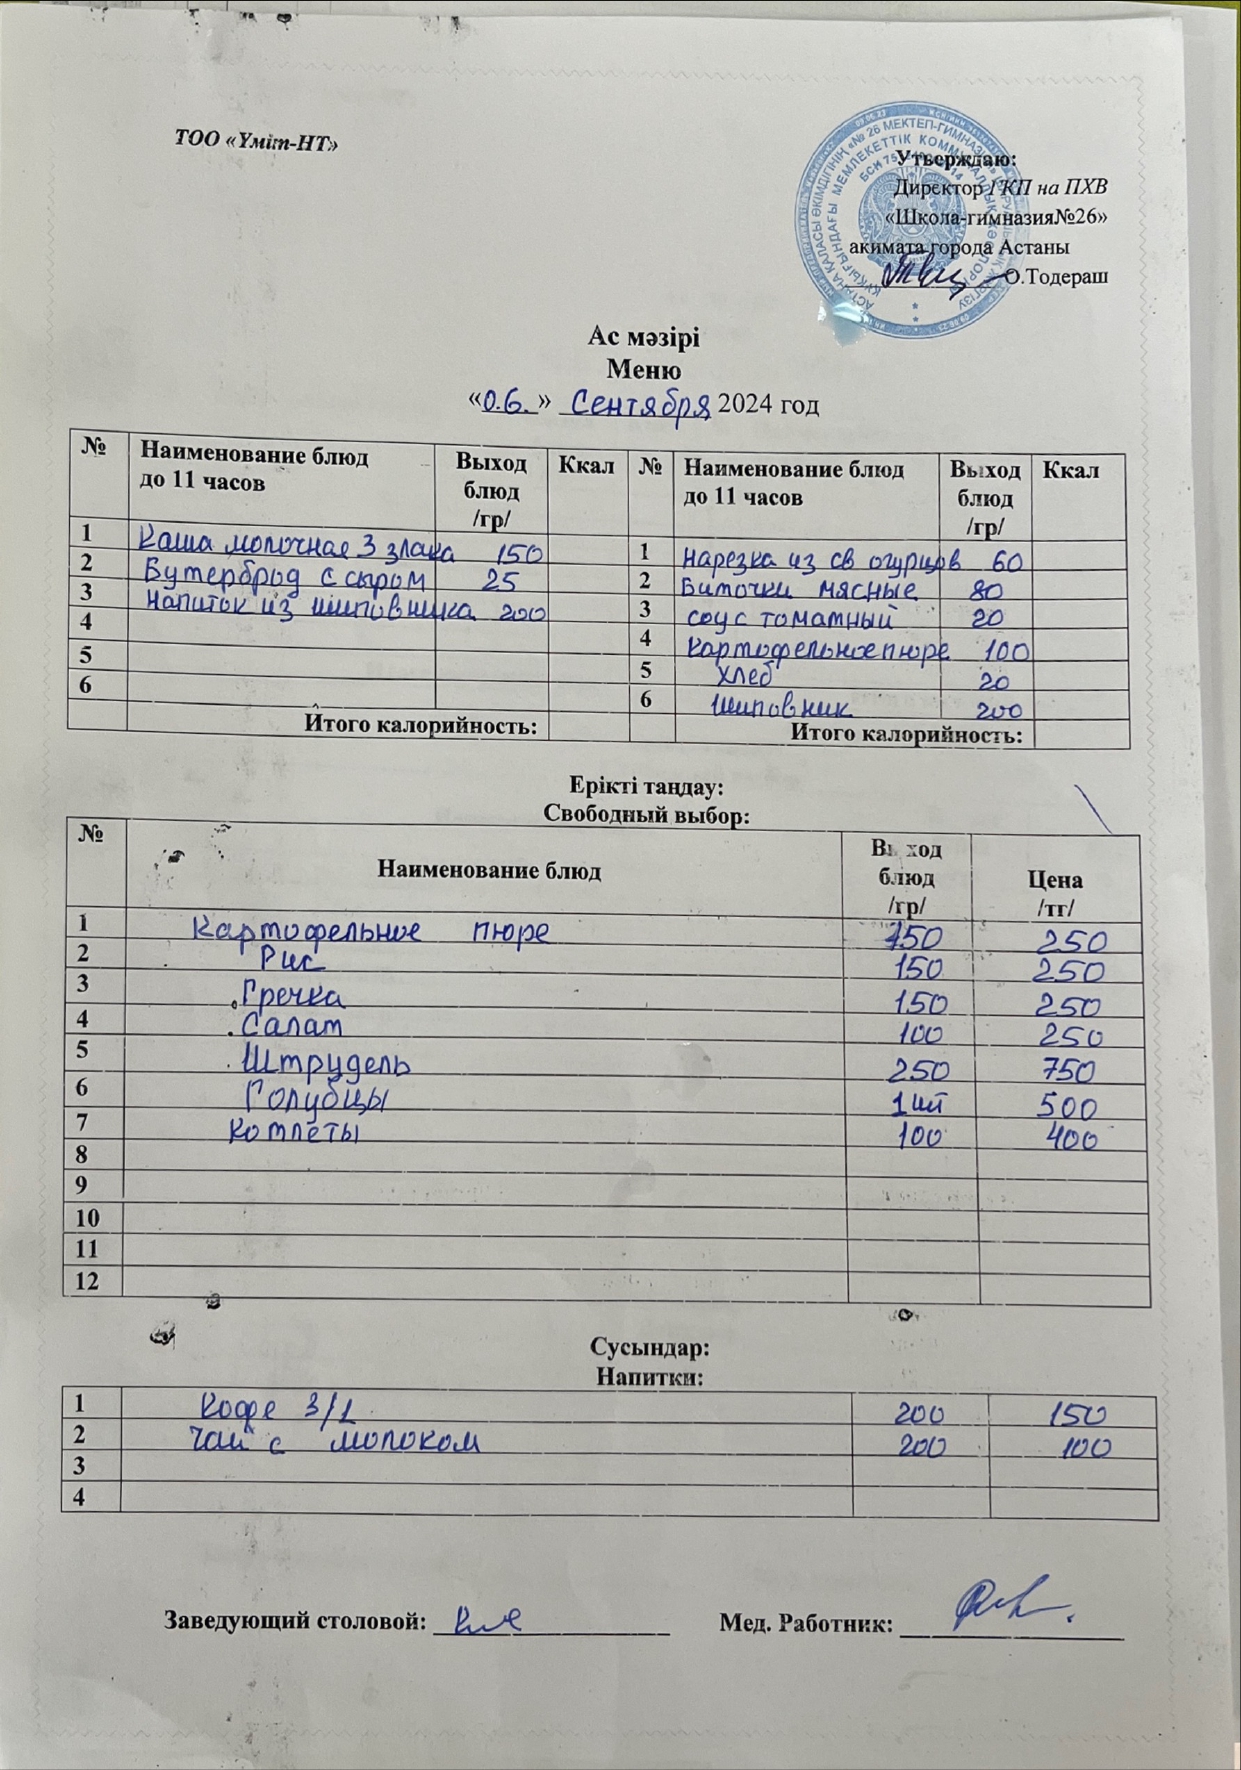 ТОО «Үміт-НТ»
Утверждаю:
Директор ГКП на ПХВ
«Школа-гимназия№26»
акимата города Астаны
О.Тодераш
Ас мәзірі
Меню
«0.6.» Сентября 2024 год
№ Наименование блюд до 11 часов Выход блюд /гр/ Ккал № Наименование блюд до 11 часов Выход блюд /гр/ Ккал
1 Каша молочная 3 злака 150 1 нарезка из св огурцов 60
2 Бутерброд с сыром 25 2 Биточки мясные 80
3 напиток из шиповника 200 3 соус томатный 20
4 4 картофельное пюре 100
5 5 хлеб 20
6 6 шиповник 200
Итого калорийность: Итого калорийность:
Ерікті таңдау:
Свободный выбор:
№ Наименование блюд Выход блюд /гр/ Цена /тг/
1 Картофельное пюре 150 250
2 Рис 150 250
3 Гречка 150 250
4 Салат 100 250
5 Штрудель 250 750
6 Голубцы 1шт 500
7 котлеты 100 400
8
9
10
11
12
Сусындар:
Напитки:
1 Кофе 3/1 200 150
2 Чай с молоком 200 100
3
4
Заведующий столовой: Мед. Работник: